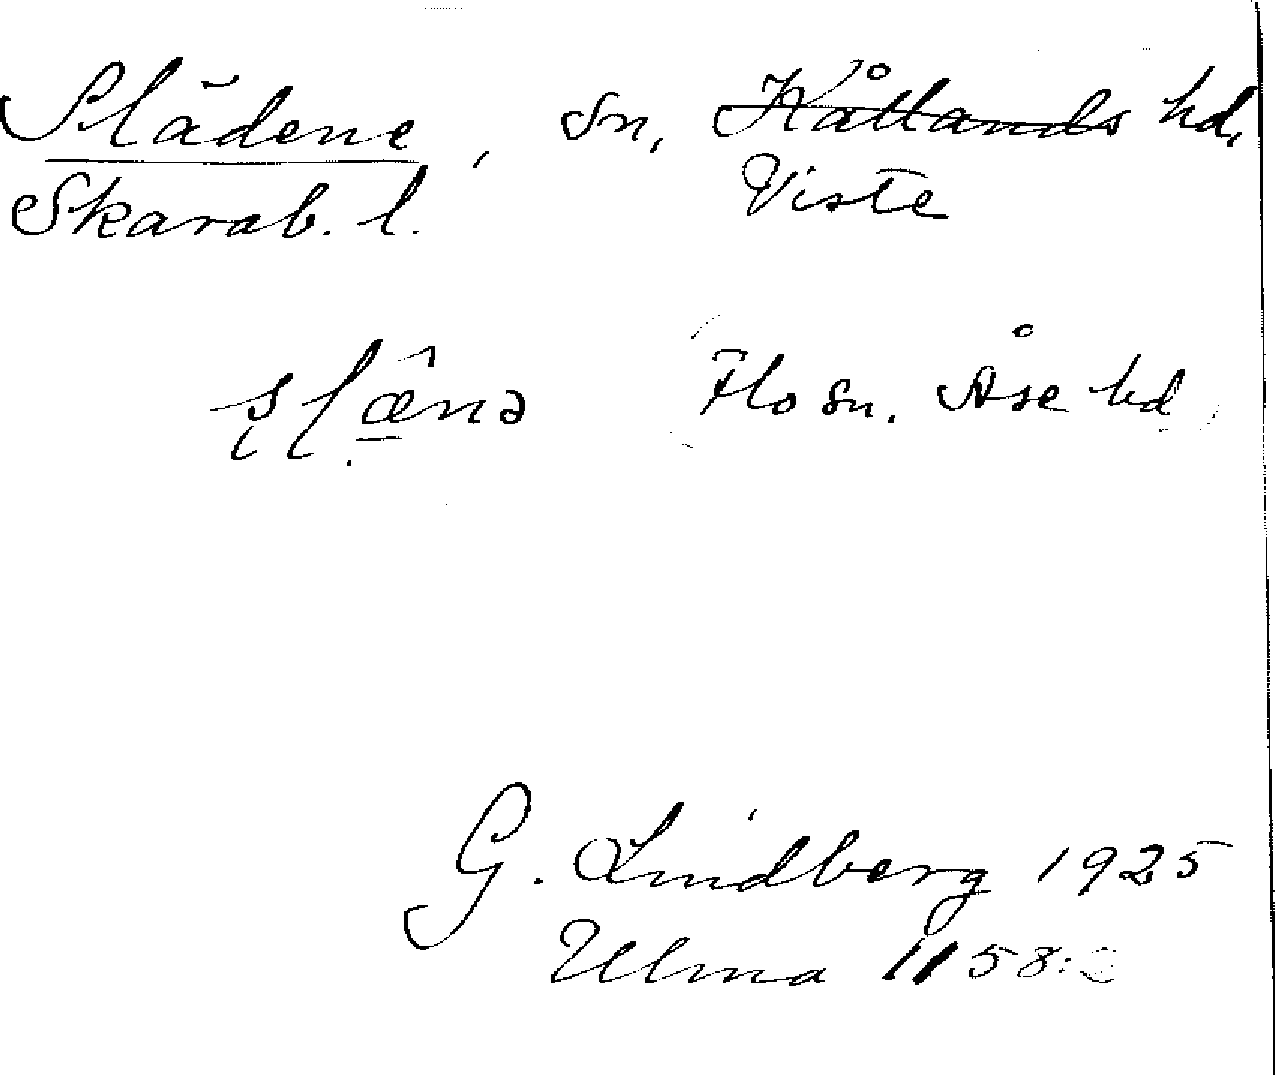 Slädene, sn, ~~Kållands~~ hd,
Skarab. l. Viste
(Flo sn. Åse hd)
G. Lindberg 1925
Ulma 1158: